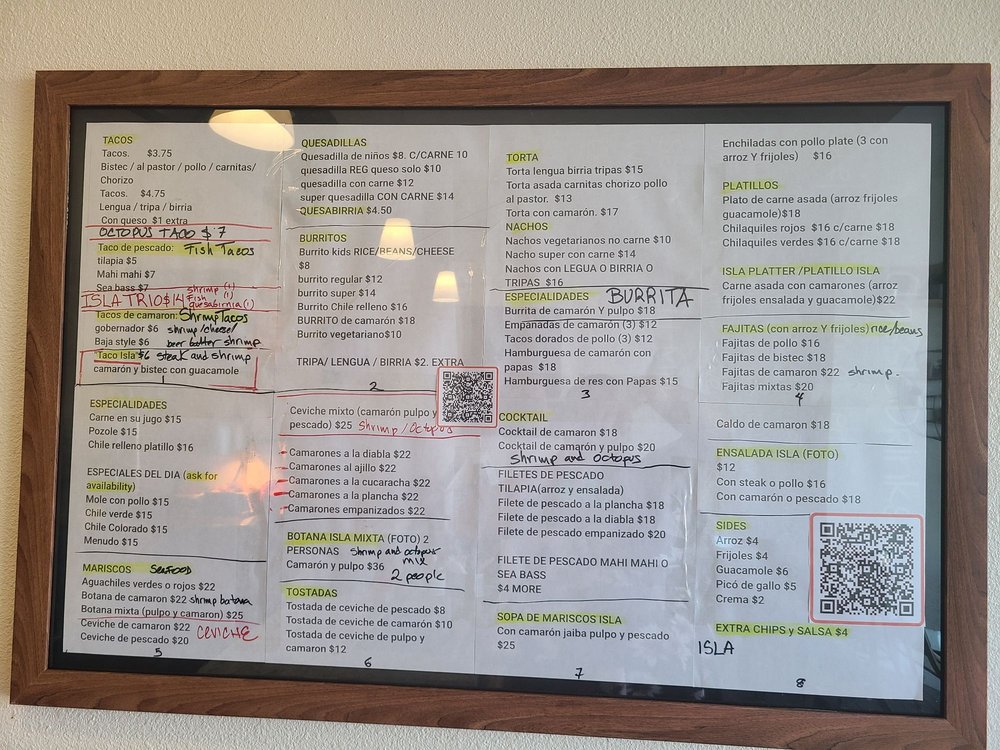 TACOS
Tacos. $3.75
Bistec / al pastor / pollo / carnitas/
Chorizo
Tacos. $4.75
Lengua / tripa / birria
Con queso $1 extra
OCTOPUS TACO $7
Taco de pescado: Fish Tacos
tilapia $5
Mahi mahi $7
Sea bass $7
ISLA TRIO $14 shrimp (1)
Fish (1)
quesabirria (1)
Tacos de camaron: Shrimp Tacos
gobernador $6 shrimp/cheese/
Baja style $6 beer batter shrimp
Taco Isla $6 steak and shrimp
camarón y bistec con guacamole
ESPECIALIDADES
Carne en su jugo $15
Pozole $15
Chile relleno platillo $16
ESPECIALES DEL DIA (ask for
availability)
Mole con pollo $15
Chile verde $15
Chile Colorado $15
Menudo $15
MARISCOS SEAFOOD
Aguachiles verdes o rojos $22
Botana de camaron $22 shrimp botana
Botana mixta (pulpo y camaron) $25
Ceviche de camaron $22 CEVICHE
Ceviche de pescado $20
5
QUESADILLAS
Quesadilla de niños $8. C/CARNE 10
quesadilla REG queso solo $10
quesadilla con carne $12
super quesadilla CON CARNE $14
QUESABIRRIA $4.50
BURRITOS
Burrito kids RICE/BEANS/CHEESE
$8
burrito regular $12
burrito super $14
Burrito Chile relleno $16
BURRITO de camarón $18
Burrito vegetariano$10
TRIPA/ LENGUA / BIRRIA $2. EXTRA
2
Ceviche mixto (camarón pulpo y
pescado) $25 Shrimp/Octopus
Camarones a la diabla $22
Camarones al ajillo $22
Camarones a la cucaracha $22
Camarones a la plancha $22
Camarones empanizados $22
BOTANA ISLA MIXTA (FOTO) 2
PERSONAS shrimp and octopus
mix
Camarón y pulpo $36 2 people
TOSTADAS
Tostada de ceviche de pescado $8
Tostada de ceviche de camarón $10
Tostada de ceviche de pulpo y
camaron $12
6
TORTA
Torta lengua birria tripas $15
Torta asada carnitas chorizo pollo
al pastor. $13
Torta con camarón. $17
NACHOS
Nachos vegetarianos no carne $10
Nacho super con carne $14
Nachos con LEGUA O BIRRIA O
TRIPAS $16
ESPECIALIDADES BURRITA
Burrita de camarón Y pulpo $18
Empanadas de camarón (3) $12
Tacos dorados de pollo (3) $12
Hamburguesa de camarón con
papas $18
Hamburguesa de res con Papas $15
3
COCKTAIL
Cocktail de camaron $18
Cocktail de camarón y pulpo $20
shrimp and octopus
FILETES DE PESCADO
TILAPIA(arroz y ensalada)
Filete de pescado a la plancha $18
Filete de pescado a la diabla $18
Filete de pescado empanizado $20
FILETE DE PESCADO MAHI MAHI O
SEA BASS
$4 MORE
SOPA DE MARISCOS ISLA
Con camarón jaiba pulpo y pescado
$25
7
Enchiladas con pollo plate (3 con
arroz Y frijoles) $16
PLATILLOS
Plato de carne asada (arroz frijoles
guacamole)$18
Chilaquiles rojos $16 c/carne $18
Chilaquiles verdes $16 c/carne $18
ISLA PLATTER /PLATILLO ISLA
Carne asada con camarones (arroz
frijoles ensalada y guacamole)$22
FAJITAS (con arroz Y frijoles) rice/beans
Fajitas de pollo $16
Fajitas de bistec $18
Fajitas de camaron $22 shrimp.
Fajitas mixtas $20
4
Caldo de camaron $18
ENSALADA ISLA (FOTO)
$12
Con steak o pollo $16
Con camarón o pescado $18
SIDES
Arroz $4
Frijoles $4
Guacamole $6
Picó de gallo $5
Crema $2
EXTRA CHIPS y SALSA $4
ISLA
8